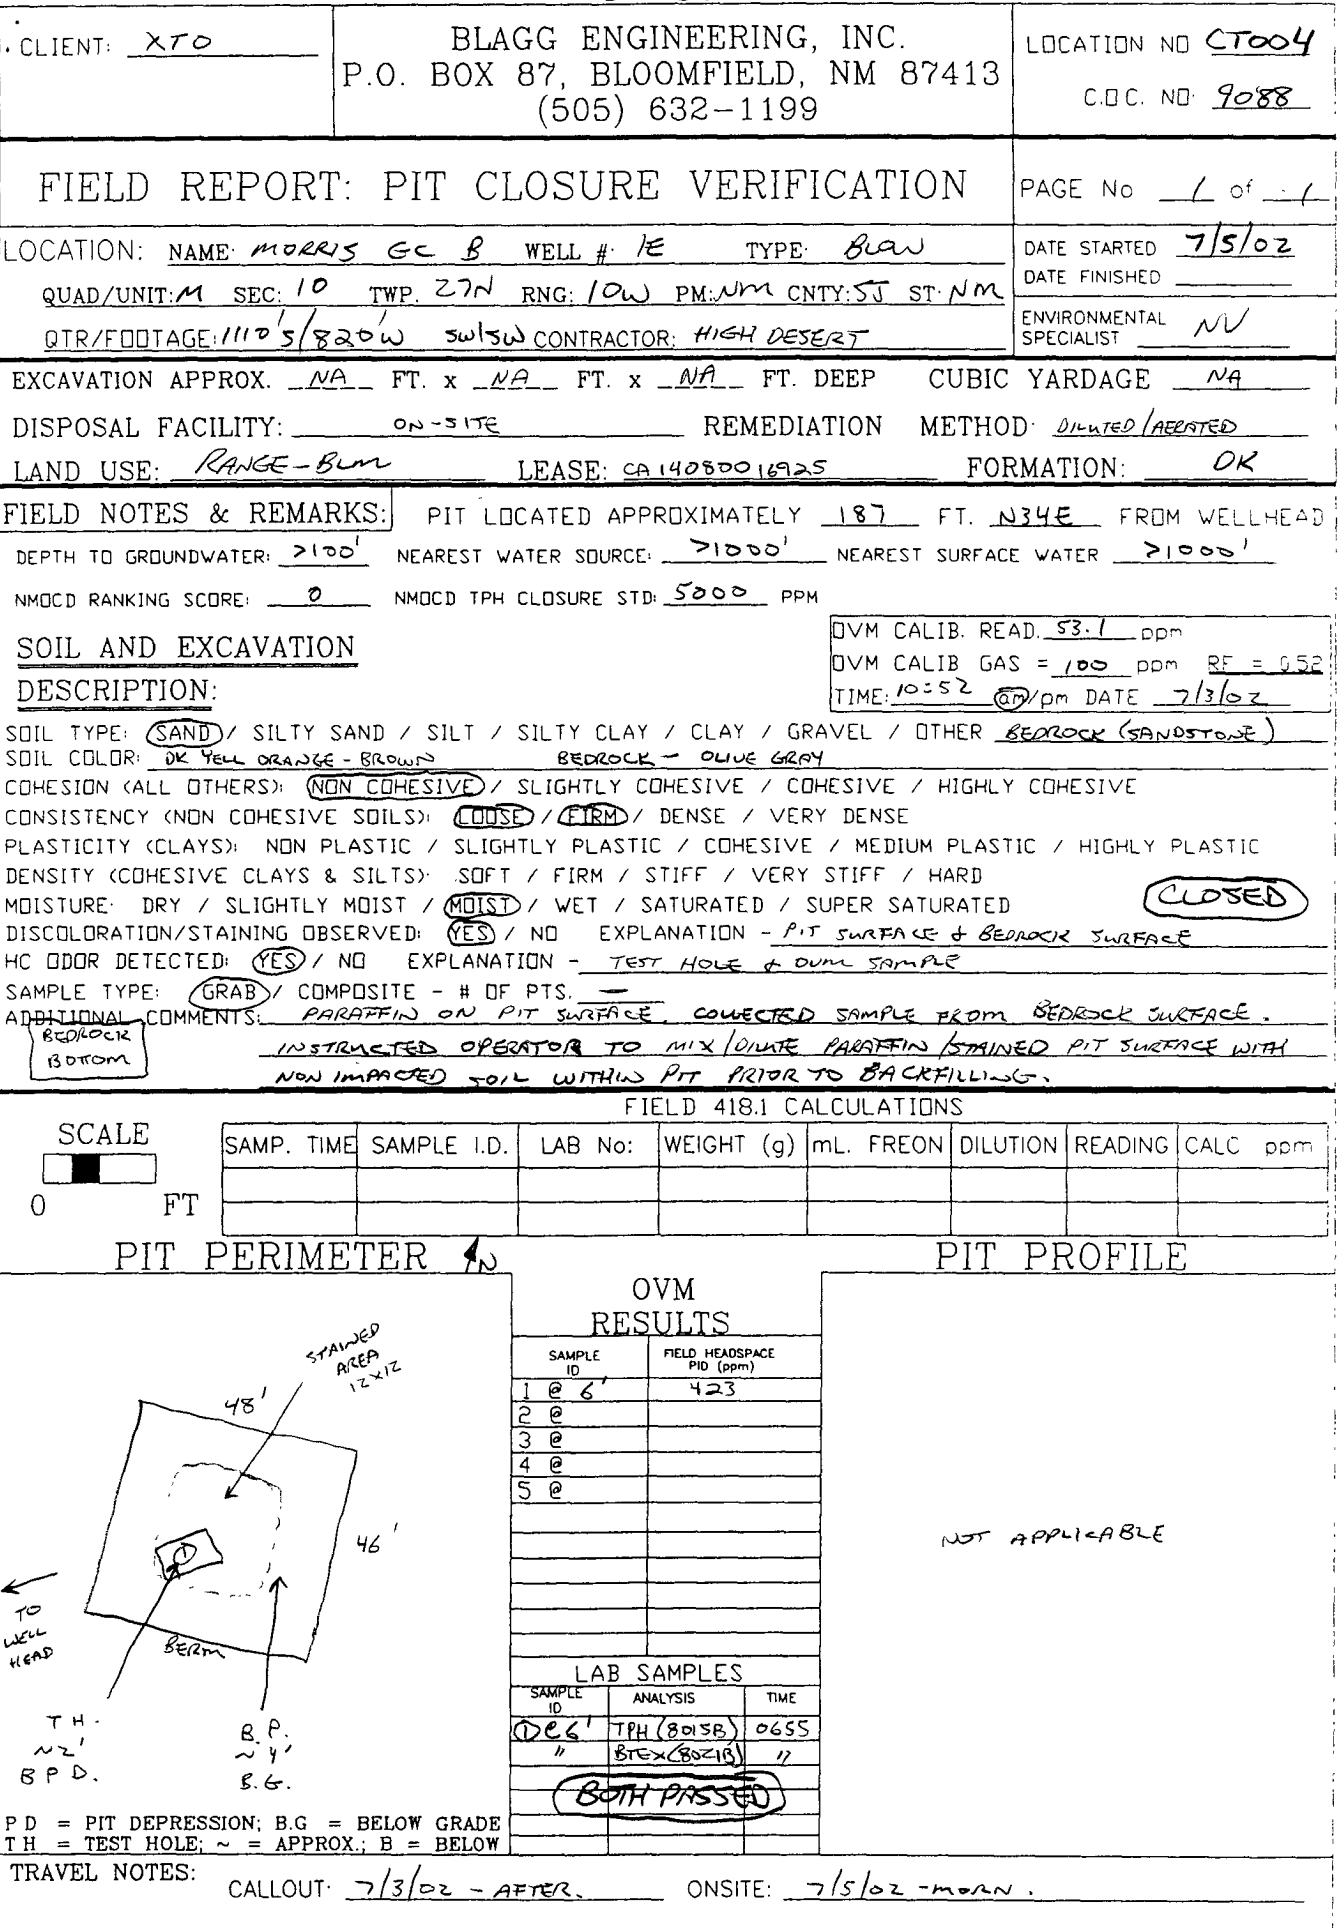 CLIENT: XTO
BLAGG ENGINEERING, INC.
P.O. BOX 87, BLOOMFIELD, NM 87413
(505) 632-1199
LOCATION NO CT004
C.O.C. NO 9088
FIELD REPORT: PIT CLOSURE VERIFICATION
PAGE No 1 of 1
LOCATION: NAME: MORRIS GC B WELL #: 1E TYPE: BLOW
QUAD/UNIT: M SEC: 10 TWP. 27N RNG: 10W PM: NM CNTY: SJ ST: NM
QTR/FOOTAGE: 1110'S/820'W SW/SW CONTRACTOR: HIGH DESERT
DATE STARTED 7/5/02
DATE FINISHED
ENVIRONMENTAL
SPECIALIST NV
EXCAVATION APPROX. NA FT. x NA FT. x NA FT. DEEP CUBIC YARDAGE NA
DISPOSAL FACILITY: ON-SITE REMEDIATION METHOD: DILUTED/AERATED
LAND USE: RANGE-BLM LEASE: CA 14080016925 FORMATION: DK
FIELD NOTES & REMARKS: PIT LOCATED APPROXIMATELY 187 FT. N34E FROM WELLHEAD
DEPTH TO GROUNDWATER: >100' NEAREST WATER SOURCE: >1000' NEAREST SURFACE WATER >1000'
NMOCD RANKING SCORE: 0 NMOCD TPH CLOSURE STD: 5000 PPM
SOIL AND EXCAVATION
DESCRIPTION:
OVM CALIB. READ. 53.1 ppm
OVM CALIB GAS = 100 ppm RF = 0.52
TIME: 10:52 am/pm DATE 7/3/02
SOIL TYPE: SAND / SILTY SAND / SILT / SILTY CLAY / CLAY / GRAVEL / OTHER BEDROCK (SANDSTONE)
SOIL COLOR: DK YELL ORANGE - BROWN BEDROCK - OLIVE GRAY
COHESION (ALL OTHERS): NON COHESIVE / SLIGHTLY COHESIVE / COHESIVE / HIGHLY COHESIVE
CONSISTENCY (NON COHESIVE SOILS): LOOSE / FIRM / DENSE / VERY DENSE
PLASTICITY (CLAYS): NON PLASTIC / SLIGHTLY PLASTIC / COHESIVE / MEDIUM PLASTIC / HIGHLY PLASTIC
DENSITY (COHESIVE CLAYS & SILTS): SOFT / FIRM / STIFF / VERY STIFF / HARD
MOISTURE: DRY / SLIGHTLY MOIST / MOIST / WET / SATURATED / SUPER SATURATED
CLOSED
DISCOLORATION/STAINING OBSERVED: YES / NO EXPLANATION - PIT SURFACE & BEDROCK SURFACE
HC ODOR DETECTED: YES / NO EXPLANATION - TEST HOLE & OVM SAMPLE
SAMPLE TYPE: GRAB / COMPOSITE - # OF PTS. —
ADDITIONAL COMMENTS: PARAFFIN ON PIT SURFACE. COLLECTED SAMPLE FROM BEDROCK SURFACE.
INSTRUCTED OPERATOR TO MIX/DILUTE PARAFFIN/STAINED PIT SURFACE WITH
NON IMPACTED SOIL WITHIN PIT PRIOR TO BACKFILLING.
BEDROCK
BOTTOM
FIELD 418.1 CALCULATIONS
SCALE
0 FT
SAMP. TIME SAMPLE I.D. LAB No: WEIGHT (g) mL. FREON DILUTION READING CALC ppm
PIT PERIMETER N
PIT PROFILE
OVM
RESULTS
SAMPLE
ID
FIELD HEADSPACE
PID (ppm)
1 @ 6' 423
2 @
3 @
4 @
5 @
STAINED
AREA
12x12
48'
46'
1
TO
WELL
HEAD
BERM
T H.
~2'
B P D.
B. P.
~ 4'
B.G.
NOT APPLICABLE
LAB SAMPLES
SAMPLE
ID
ANALYSIS
TIME
1 @ 6' TPH (8015B) 0655
" BTEX (8021B) "
BOTH PASSED
P D = PIT DEPRESSION; B.G = BELOW GRADE
T H = TEST HOLE; ~ = APPROX.; B = BELOW
TRAVEL NOTES:
CALLOUT: 7/3/02 - AFTER. ONSITE: 7/5/02 - MORN.